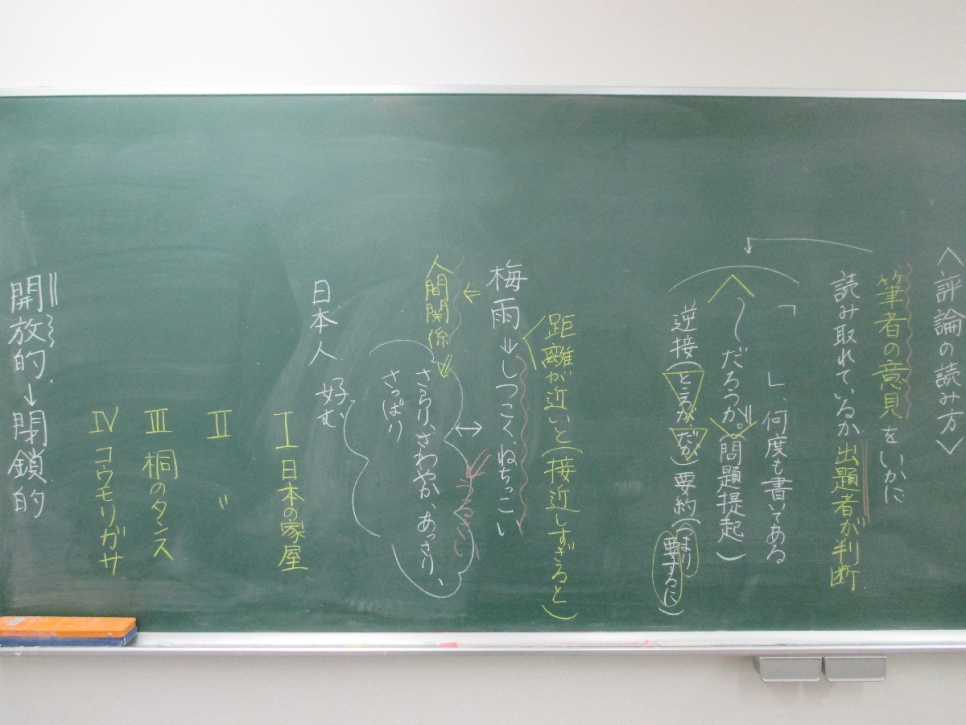 〈評論の読み方〉
筆者の意見をいかに
読み取れているか出題者が判断
「　」、何度も書いてある
～だろうか。問題提起)
逆接(ところが、だが)要約(つまり
要するに)
距離が近いと(接近しすぎると)
梅雨⇒しつこく、ねちっこい
うるさい
人間関係
さらり、さわやか、あっさり、
さっぱり
日本人 好む
Ⅰ 日本の家屋
Ⅱ 〃
Ⅲ 桐のタンス
Ⅳ コウモリガサ
開放的→閉鎖的